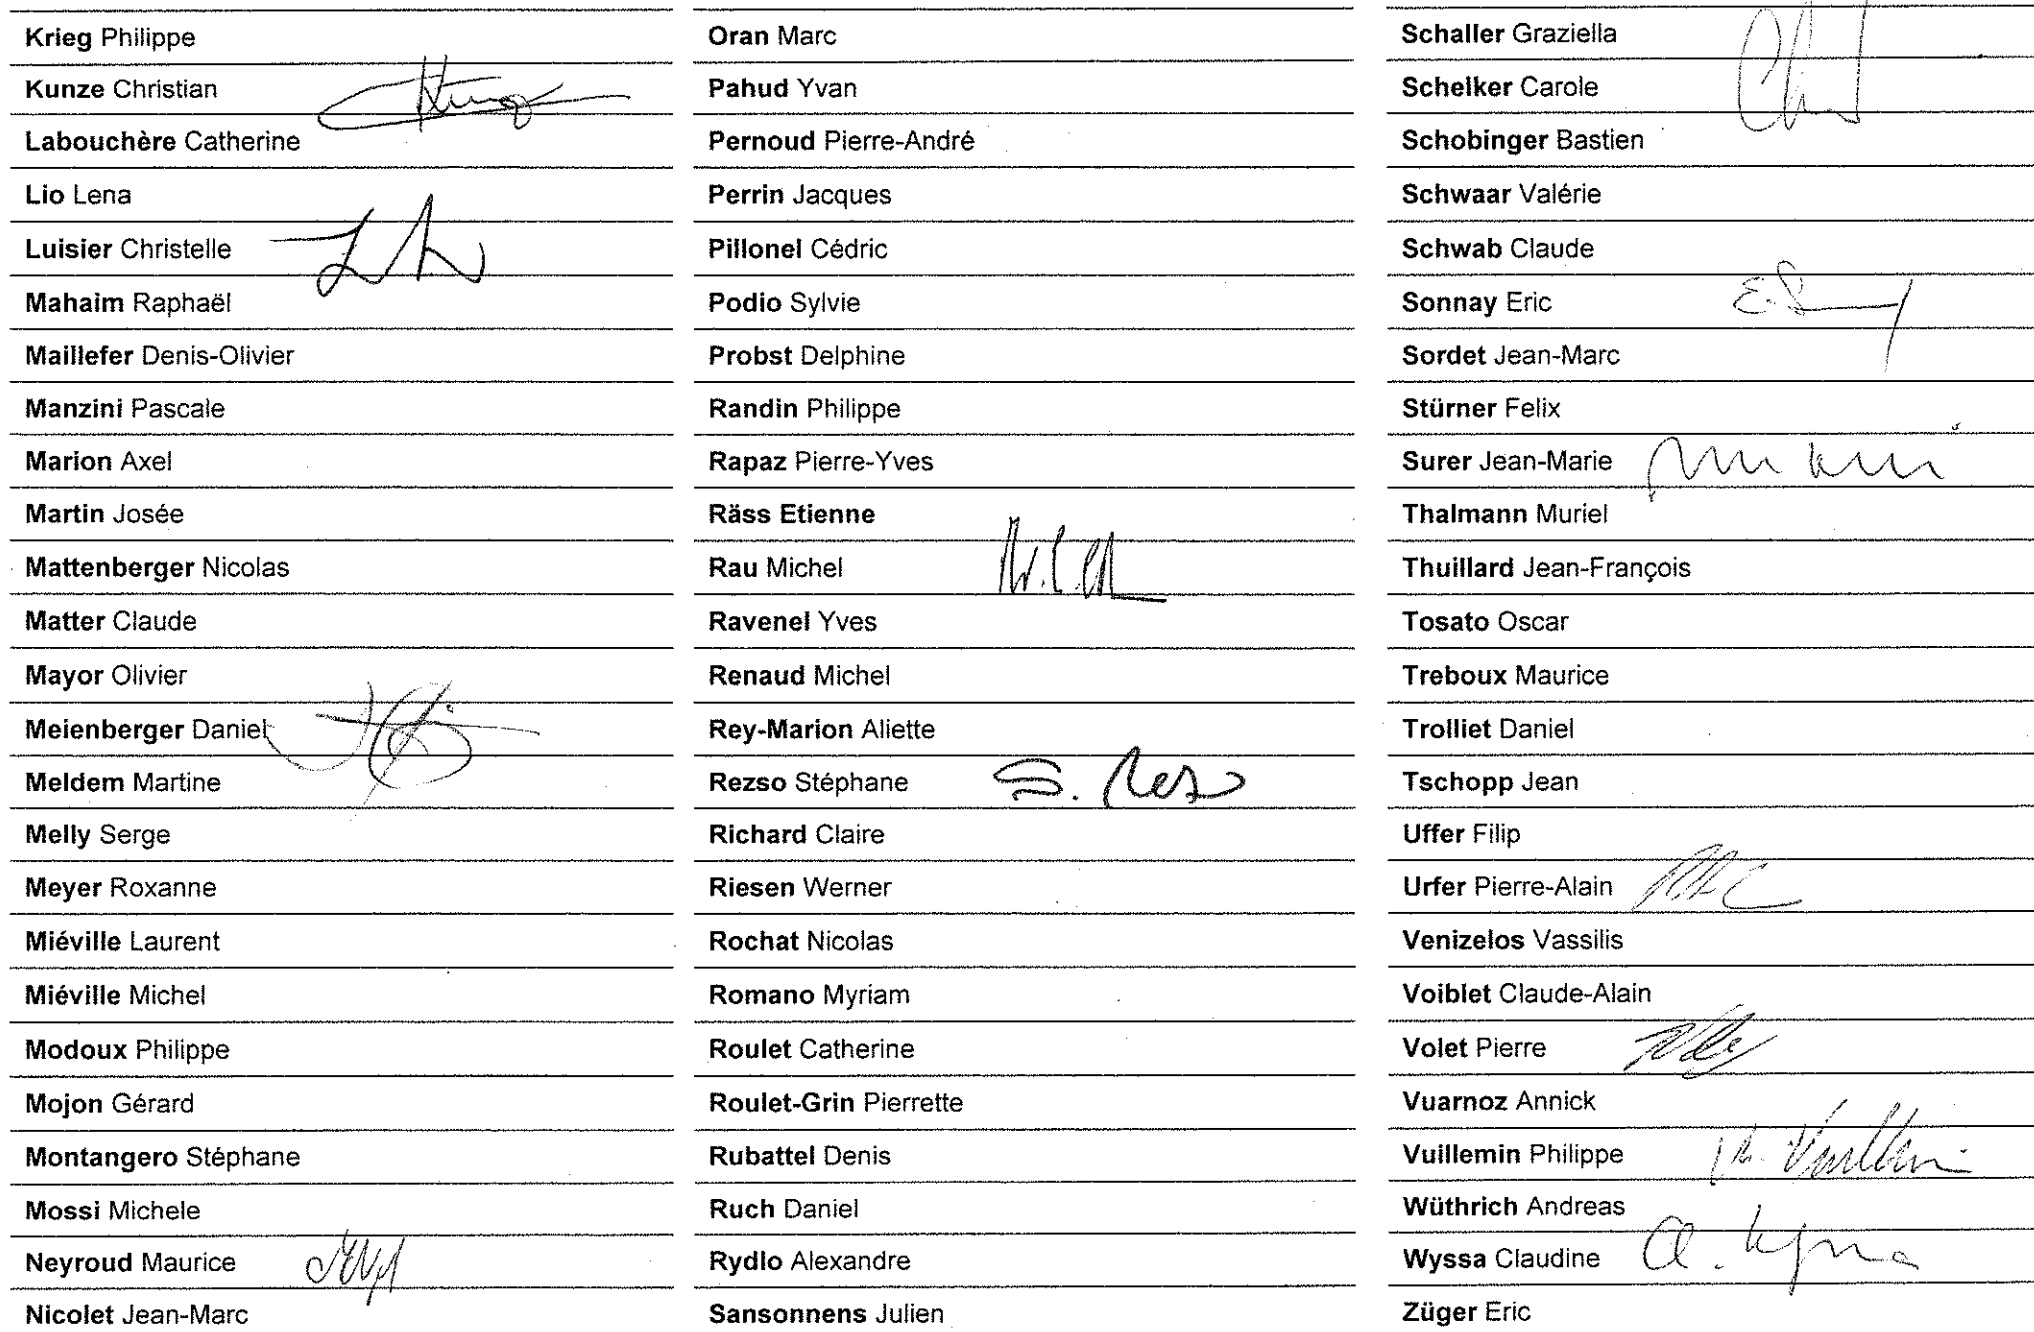 Krieg Philippe
Kunze Christian
Labouchère Catherine
Lio Lena
Luisier Christelle
Mahaim Raphaël
Maillefer Denis-Olivier
Manzini Pascale
Marion Axel
Martin Josée
Mattenberger Nicolas
Matter Claude
Mayor Olivier
Meienberger Daniel
Meldem Martine
Melly Serge
Meyer Roxanne
Miéville Laurent
Miéville Michel
Modoux Philippe
Mojon Gérard
Montangero Stéphane
Mossi Michele
Neyroud Maurice
Nicolet Jean-Marc
Oran Marc
Pahud Yvan
Pernoud Pierre-André
Perrin Jacques
Pillonel Cédric
Podio Sylvie
Probst Delphine
Randin Philippe
Rapaz Pierre-Yves
Räss Etienne
Rau Michel
Ravenel Yves
Renaud Michel
Rey-Marion Aliette
Rezso Stéphane S. Rezso
Richard Claire
Riesen Werner
Rochat Nicolas
Romano Myriam
Roulet Catherine
Roulet-Grin Pierrette
Rubattel Denis
Ruch Daniel
Rydlo Alexandre
Sansonnens Julien
Schaller Graziella
Schelker Carole
Schobinger Bastien
Schwaar Valérie
Schwab Claude
Sonnay Eric
Sordet Jean-Marc
Stürner Felix
Surer Jean-Marie
Thalmann Muriel
Thuillard Jean-François
Tosato Oscar
Treboux Maurice
Trolliet Daniel
Tschopp Jean
Uffer Filip
Urfer Pierre-Alain
Venizelos Vassilis
Voiblet Claude-Alain
Volet Pierre
Vuarnoz Annick
Vuillemin Philippe
Wüthrich Andreas
Wyssa Claudine
Züger Eric